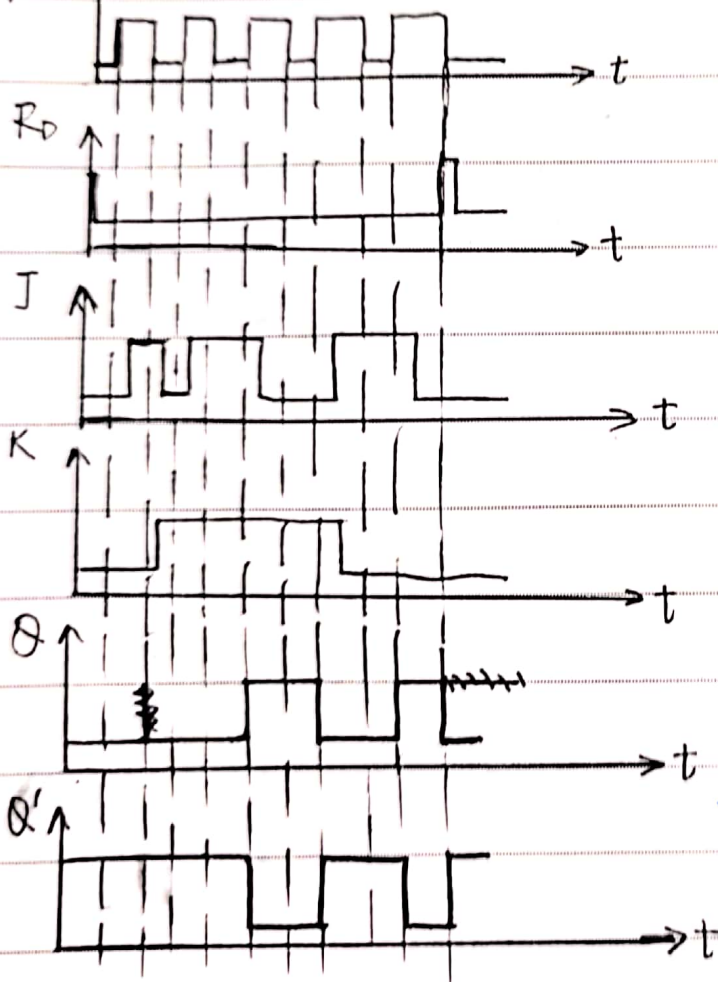 t
R_D
t
J
t
K
t
Q
t
Q'
t